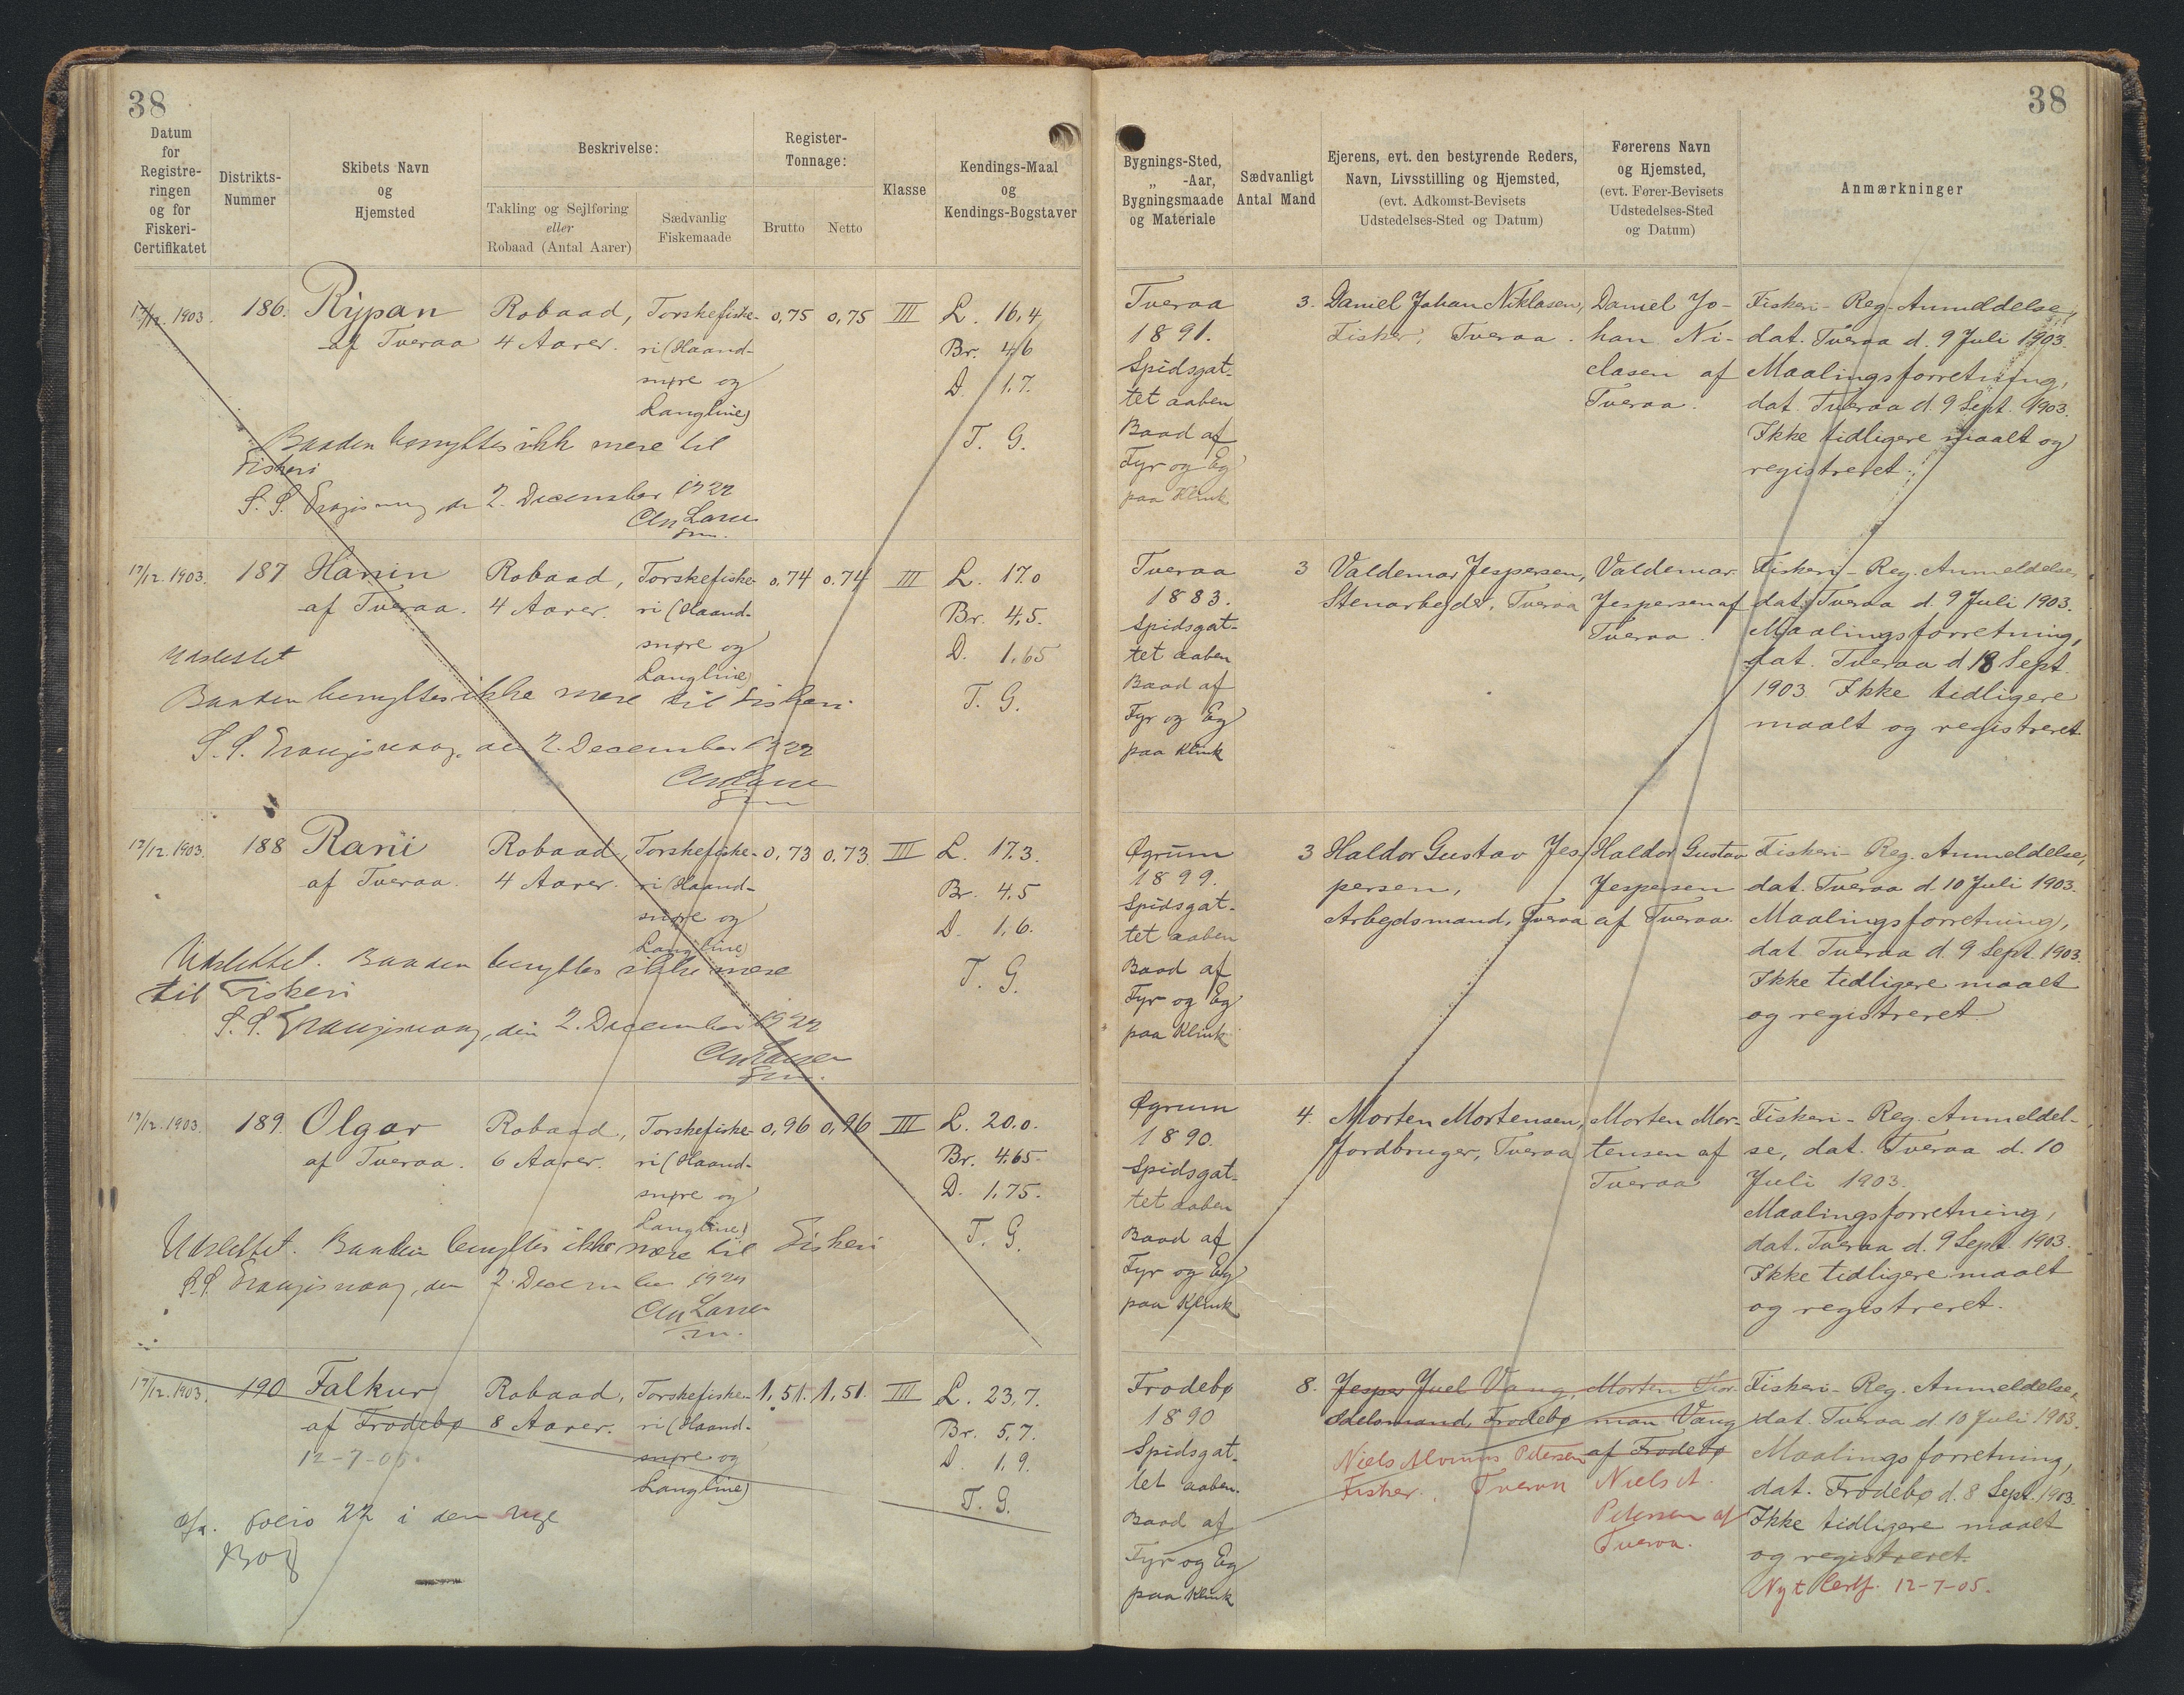 38
38
Datum
for
Registre-
ringen
og for
Fiskeri-
Certifikatet
Distrikts-
Nummer
Skibets Navn
og
Hjemsted
Beskrivelse:
Takling og Sejlføring
eller
Robaad (Antal Aarer)
Sædvanlig
Fiskemaade
Register-
Tonnage:
Brutto
Netto
Klasse
Kendings-Maal
og
Kendings-Bogstaver
Bygnings-Sted,
„ -Aar,
Bygningsmaade
og Materiale
Sædvanligt
Antal Mand
Ejerens, evt. den bestyrende Reders,
Navn, Livsstilling og Hjemsted,
(evt. Adkomst-Bevisets
Udstedelses-Sted og Datum)
Førerens Navn
og Hjemsted,
(evt. Fører-Bevisets
Udstedelses-Sted
og Datum)
Anmærkninger
17/12. 1903.
186.
Rypan
af Tveraa
Robaad,
4 Aarer.
Torskefiske-
ri (Haand-
snøre og
Langline)
0,75
0,75
III
L. 16,4
Br. 4,6
D. 1,7.
T. G.
Baaden benyttes ikk mere til
Fiskeri
S. S. Trangisvaag den 2. December 1922
Tveraa
1891.
Spidsgat-
tet aaben
Baad af
Fyr og Eg
paa Klink
3.
Daniel Johan Niklasen,
Fisker, Tveraa.
Daniel Jo-
han Ni-
clasen af
Tveraa.
Fiskeri-Reg. Anmeldelse,
dat. Tveraa d. 9 Juli 1903.
Maalingsforretning,
dat. Tveraa d. 9 Sept. 1903.
Ikke tidligere maalt og
registreret.
17/12. 1903.
187
Hanin
af Tveraa.
Robaad,
4 Aarer.
Torskefiske-
ri (Haand-
snøre og
Langline)
0,74
0,74
III
L. 17.0
Br. 4,5.
D. 1,65
T. G.
Udslettet
Baaden benyttes ikke mere til Fiskeri
S. S. Trangisvaag, den 2. December 1922
Tveraa
1883.
Spidsgat-
tet aaben
Baad af
Fyr og Eg
paa Klink
3
Valdemar Jespersen,
Stenarbejder, Tveraa
Valdemar
Jespersen af
Tveraa.
Fiskeri-Reg. Anmeldelse,
dat. Tveraa d. 9 Juli 1903.
Maalingsforretning,
dat. Tveraa d 18 Sept.
1903. Ikke tidligere
maalt og registreret.
17/12. 1903.
188
Rani
af Tveraa.
Robaad,
4 Aarer.
Torskefiske-
ri (Haand-
snøre og
Langline)
0,73
0,73
III
L. 17.3.
Br. 4,5
D. 1,6.
T. G.
Udslettet. Baaden benyttes ikke mere
til Fiskeri
S. S. Trangisvaag, den 2. December 1922
Øgrum
1899.
Spidsgat-
tet aaben
Baad af
Fyr og Eg
paa Klink
3
Haldor Gustav Jes-
persen,
Arbejdsmand, Tveraa
Haldor Gustav
Jespersen
af Tveraa.
Fiskeri-Reg. Anmeldelse,
dat. Tveraa d. 10 Juli 1903.
Maalingsforretning,
dat Tveraa d. 9 Sept. 1903.
Ikke tidligere maalt
og registreret.
17/12. 1903.
189.
Olgar
af Tveraa.
Robaad,
6 Aarer.
Torskefiske-
ri (Haand-
snøre og
Langline)
0,96
0,96
III
L. 20,0.
Br. 4,65.
D. 1,75.
T. G.
Udslettet. Baaden benyttes ikke mere til Fiskeri
S.S. Trangisvaag, den 2. December 1922
Øgrum
1890.
Spidsgat-
tet aaben
Baad af
Fyr og Eg
paa Klink
4.
Morten Mortensen,
Jordbruger, Tveraa
Morten Mor-
tensen af
Tveraa
Fiskeri-Reg. Anmeldel-
se, dat. Tveraa d. 10
Juli 1903.
Maalingsforretning,
dat. Tveraa d. 9 Sept. 1903.
Ikke tidligere maalt
og registreret.
17/12. 1903.
190
Falkur
af Frodebø
12-7-05.
Robaad,
8 Aarer.
Torskefiske-
ri (Haand-
snøre og
Langline)
1,51.
1,51.
III
L. 23,7.
Br. 5,7.
D. 1,9.
T. G.
Folio 22 i den nye
Bog
Frodebø
1890
Spidsgat-
tet aaben.
Baad af
Fyr og Eg
paa Klink
8.
Jesper Juel Vang,
Odelsmand, Frodebø
Niels Alvinus Petersen
Fisker, Tveraa
Morten Thor-
man Vang
af Frodebø
Niels A.
Petersen af
Tveraa.
Fiskeri-Reg. Anmeldelse,
dat. Tveraa d. 10 Juli 1903.
Maalingsforretning,
dat. Frodebø d. 8 Sept. 1903.
Ikke tidligere maalt
og registreret.
Nyt Certf. 12-7-05.